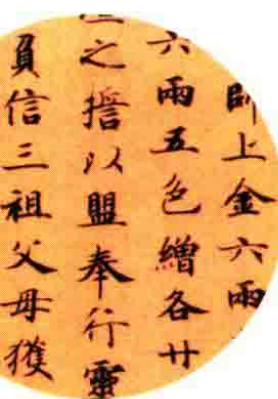 師上金六兩
六兩五色繒各廿
之擔以盟奉行靈
負信三祖父母獲